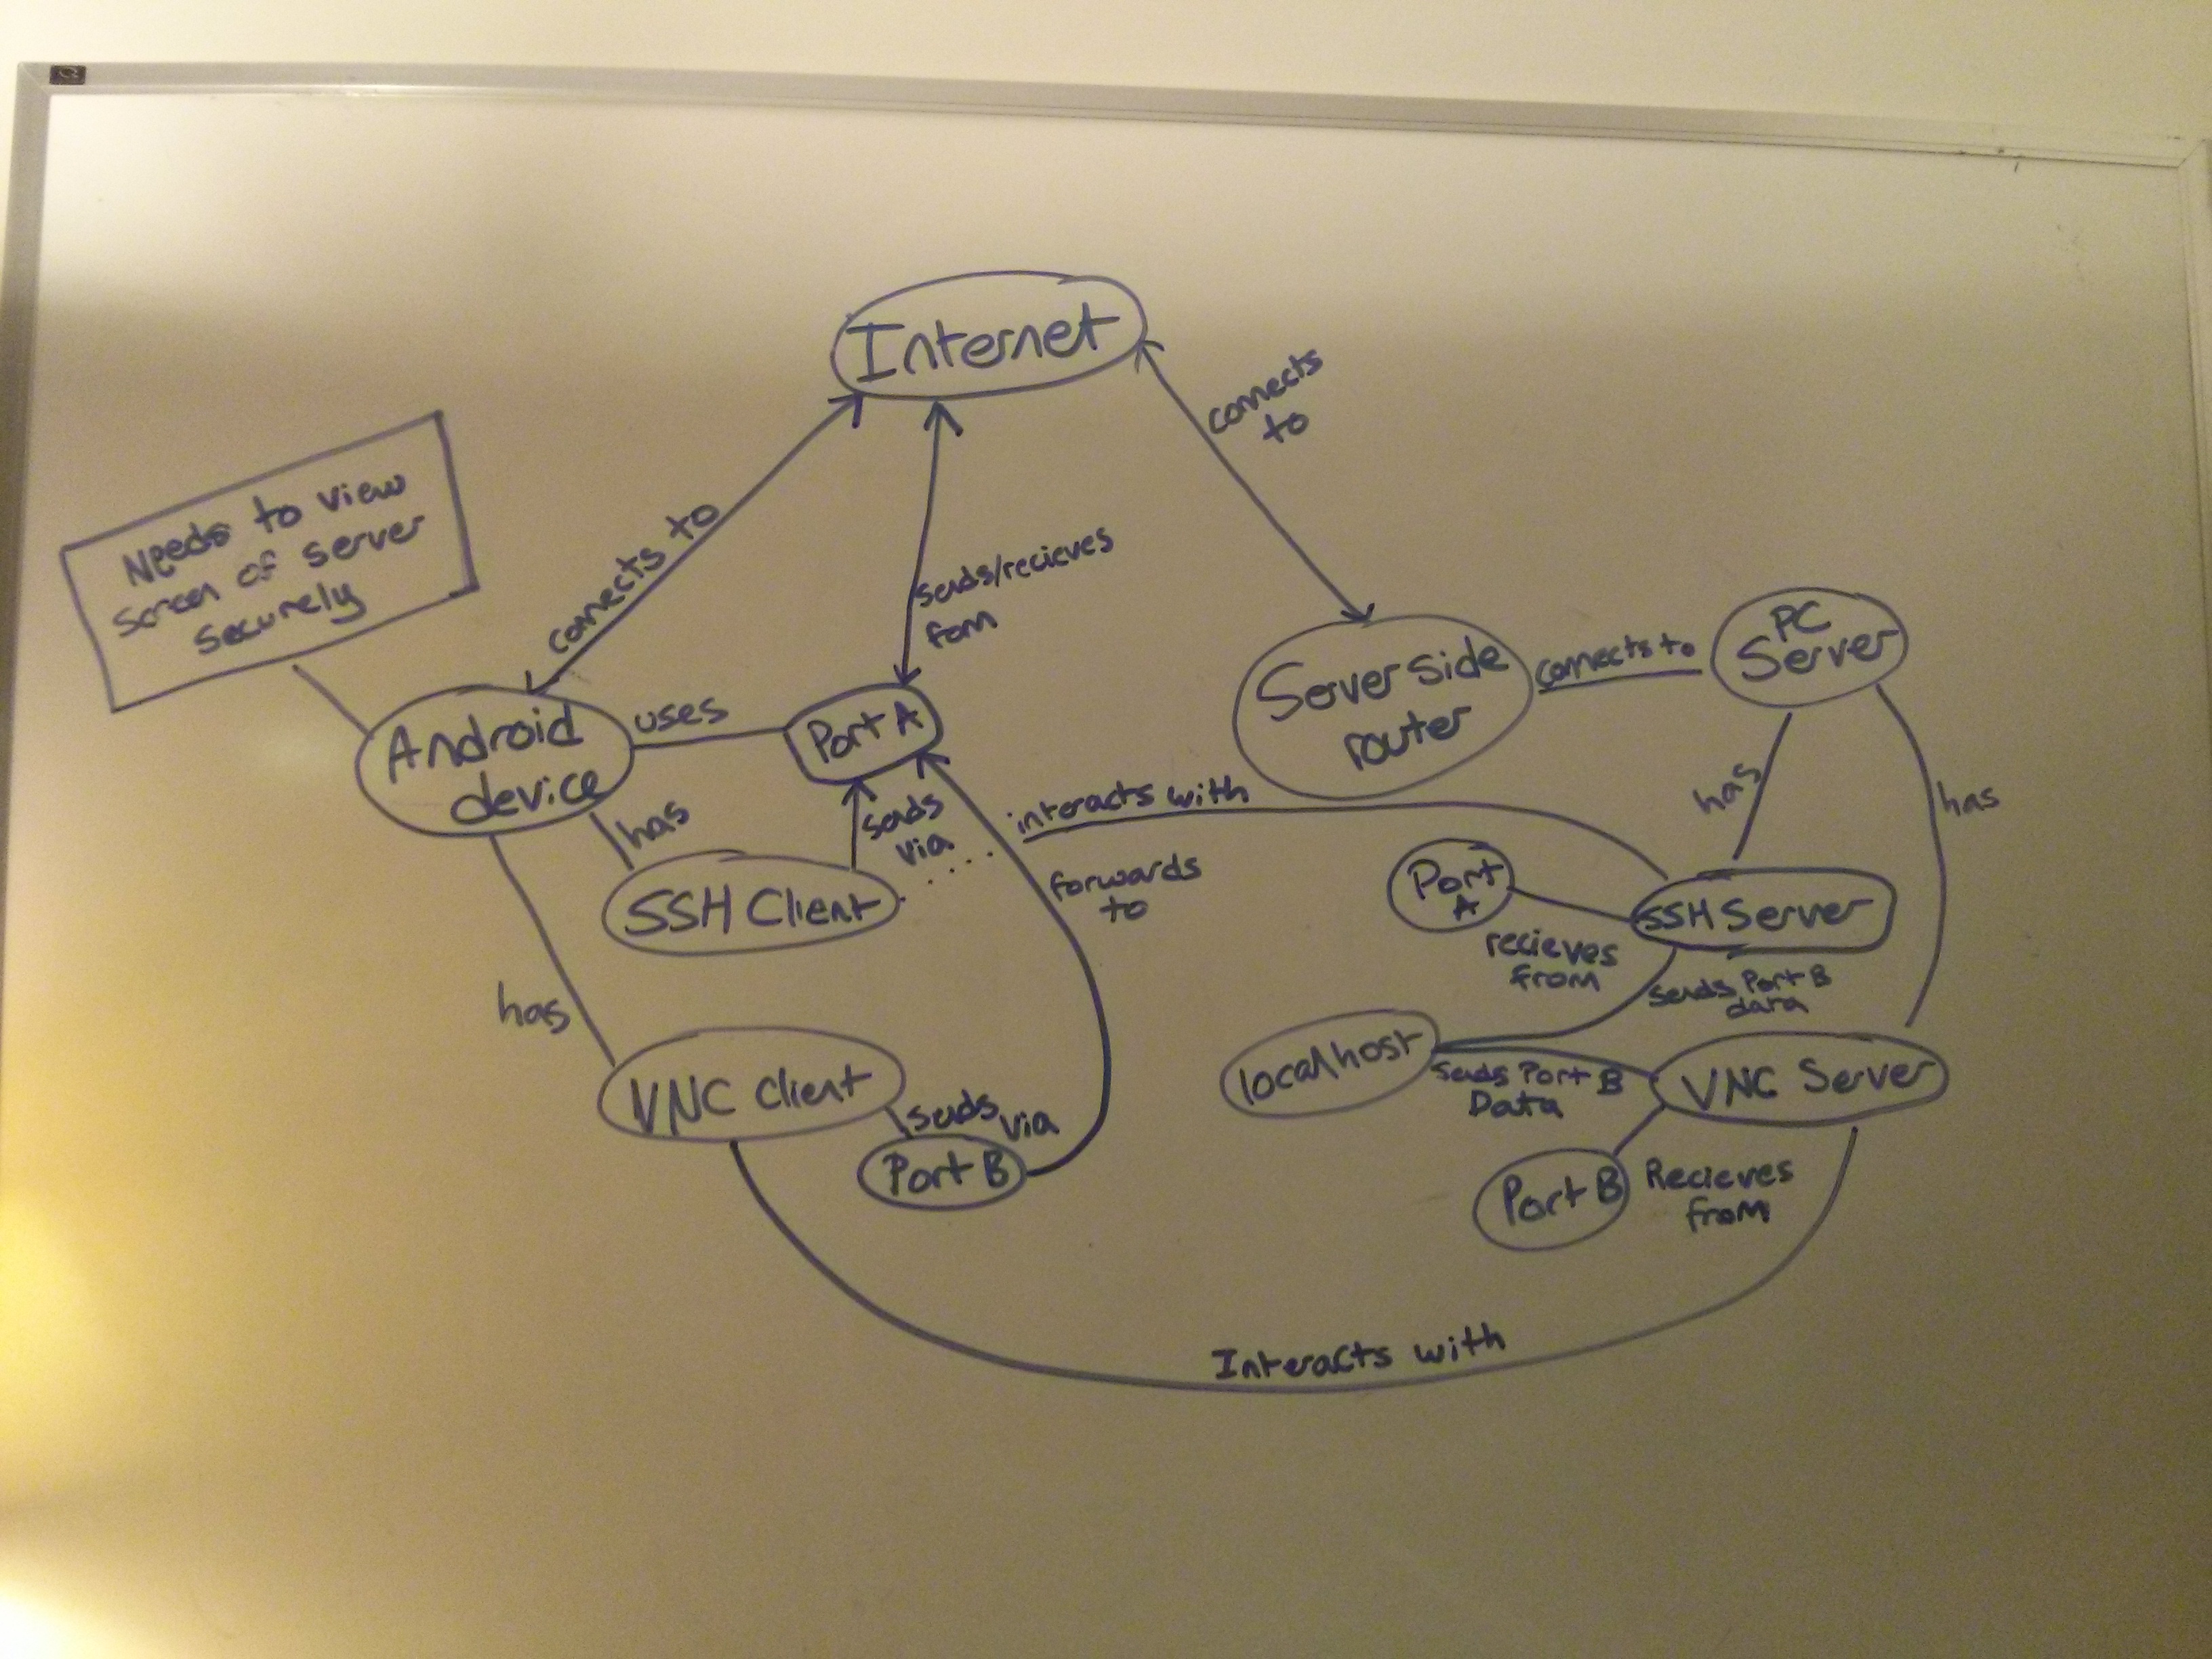 Internet
connects
to
Needs to view
screen of server
securely
connects to
sends/recieves
fom
PC
Server
Server side
router
connects to
Android
device
uses
Port A
has
sends
via
interacts with
has
has
SSH Client
forwards
to
Port
A
SSH Server
recieves
from
sends Port B
data
has
localhost
VNC Client
sends via
sends Port B
Data
VNC Server
Port B
Port B
Recieves
from
Interacts with